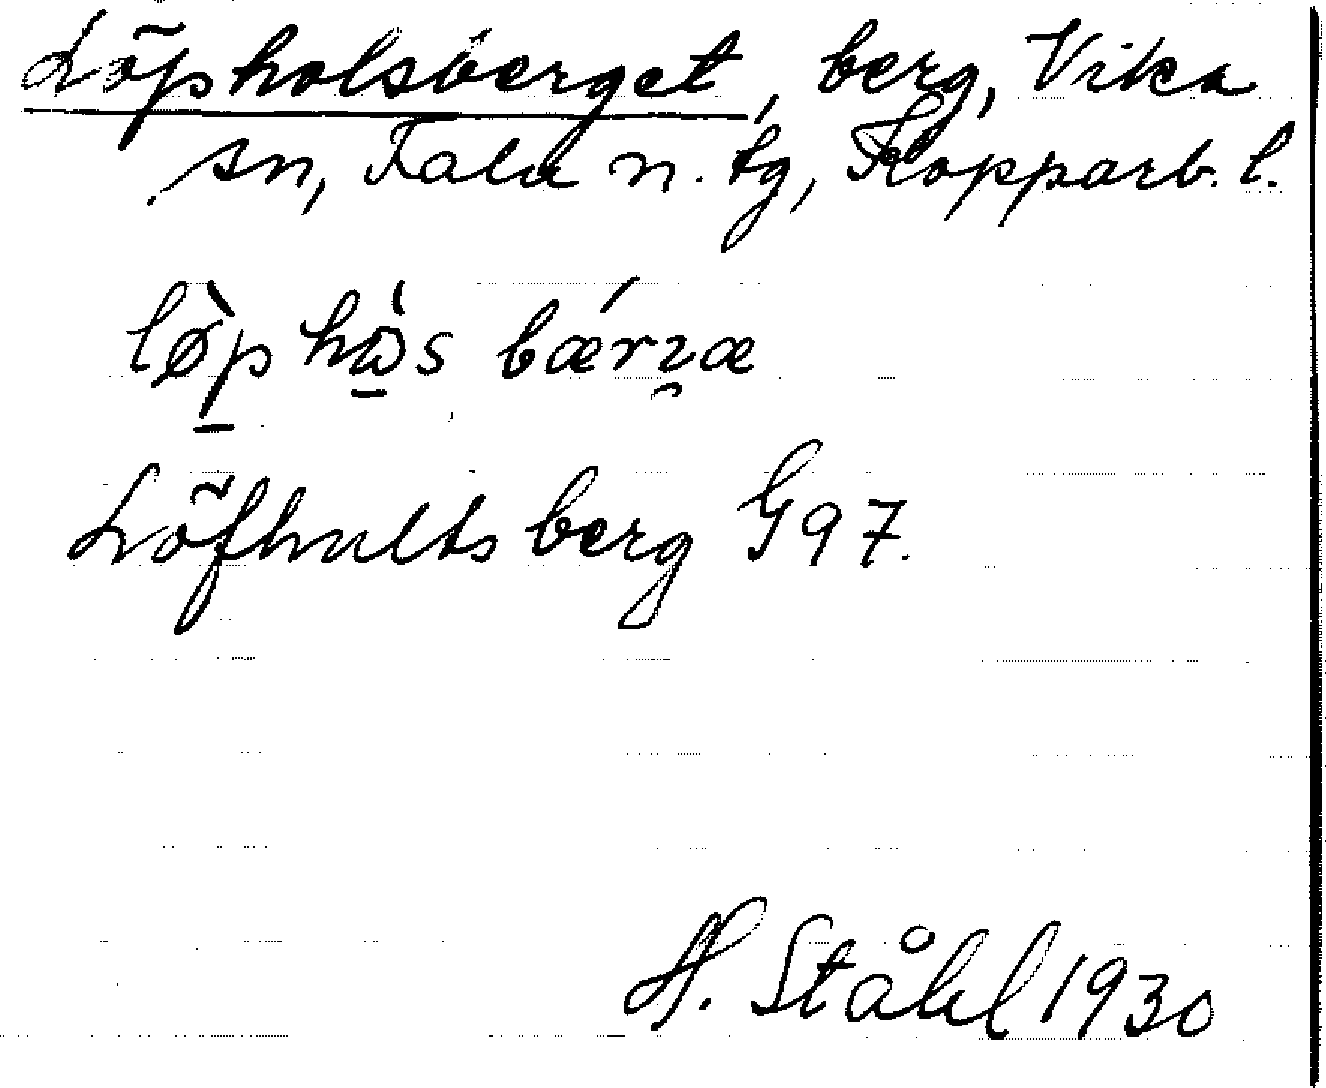 Löpholsberget, berg, Vika
sn, Falu n. tg, Kopparb. l.
lø̀p hὼs bǽrꝛæ
Löfhults berg G97.
H. Ståhl 1930